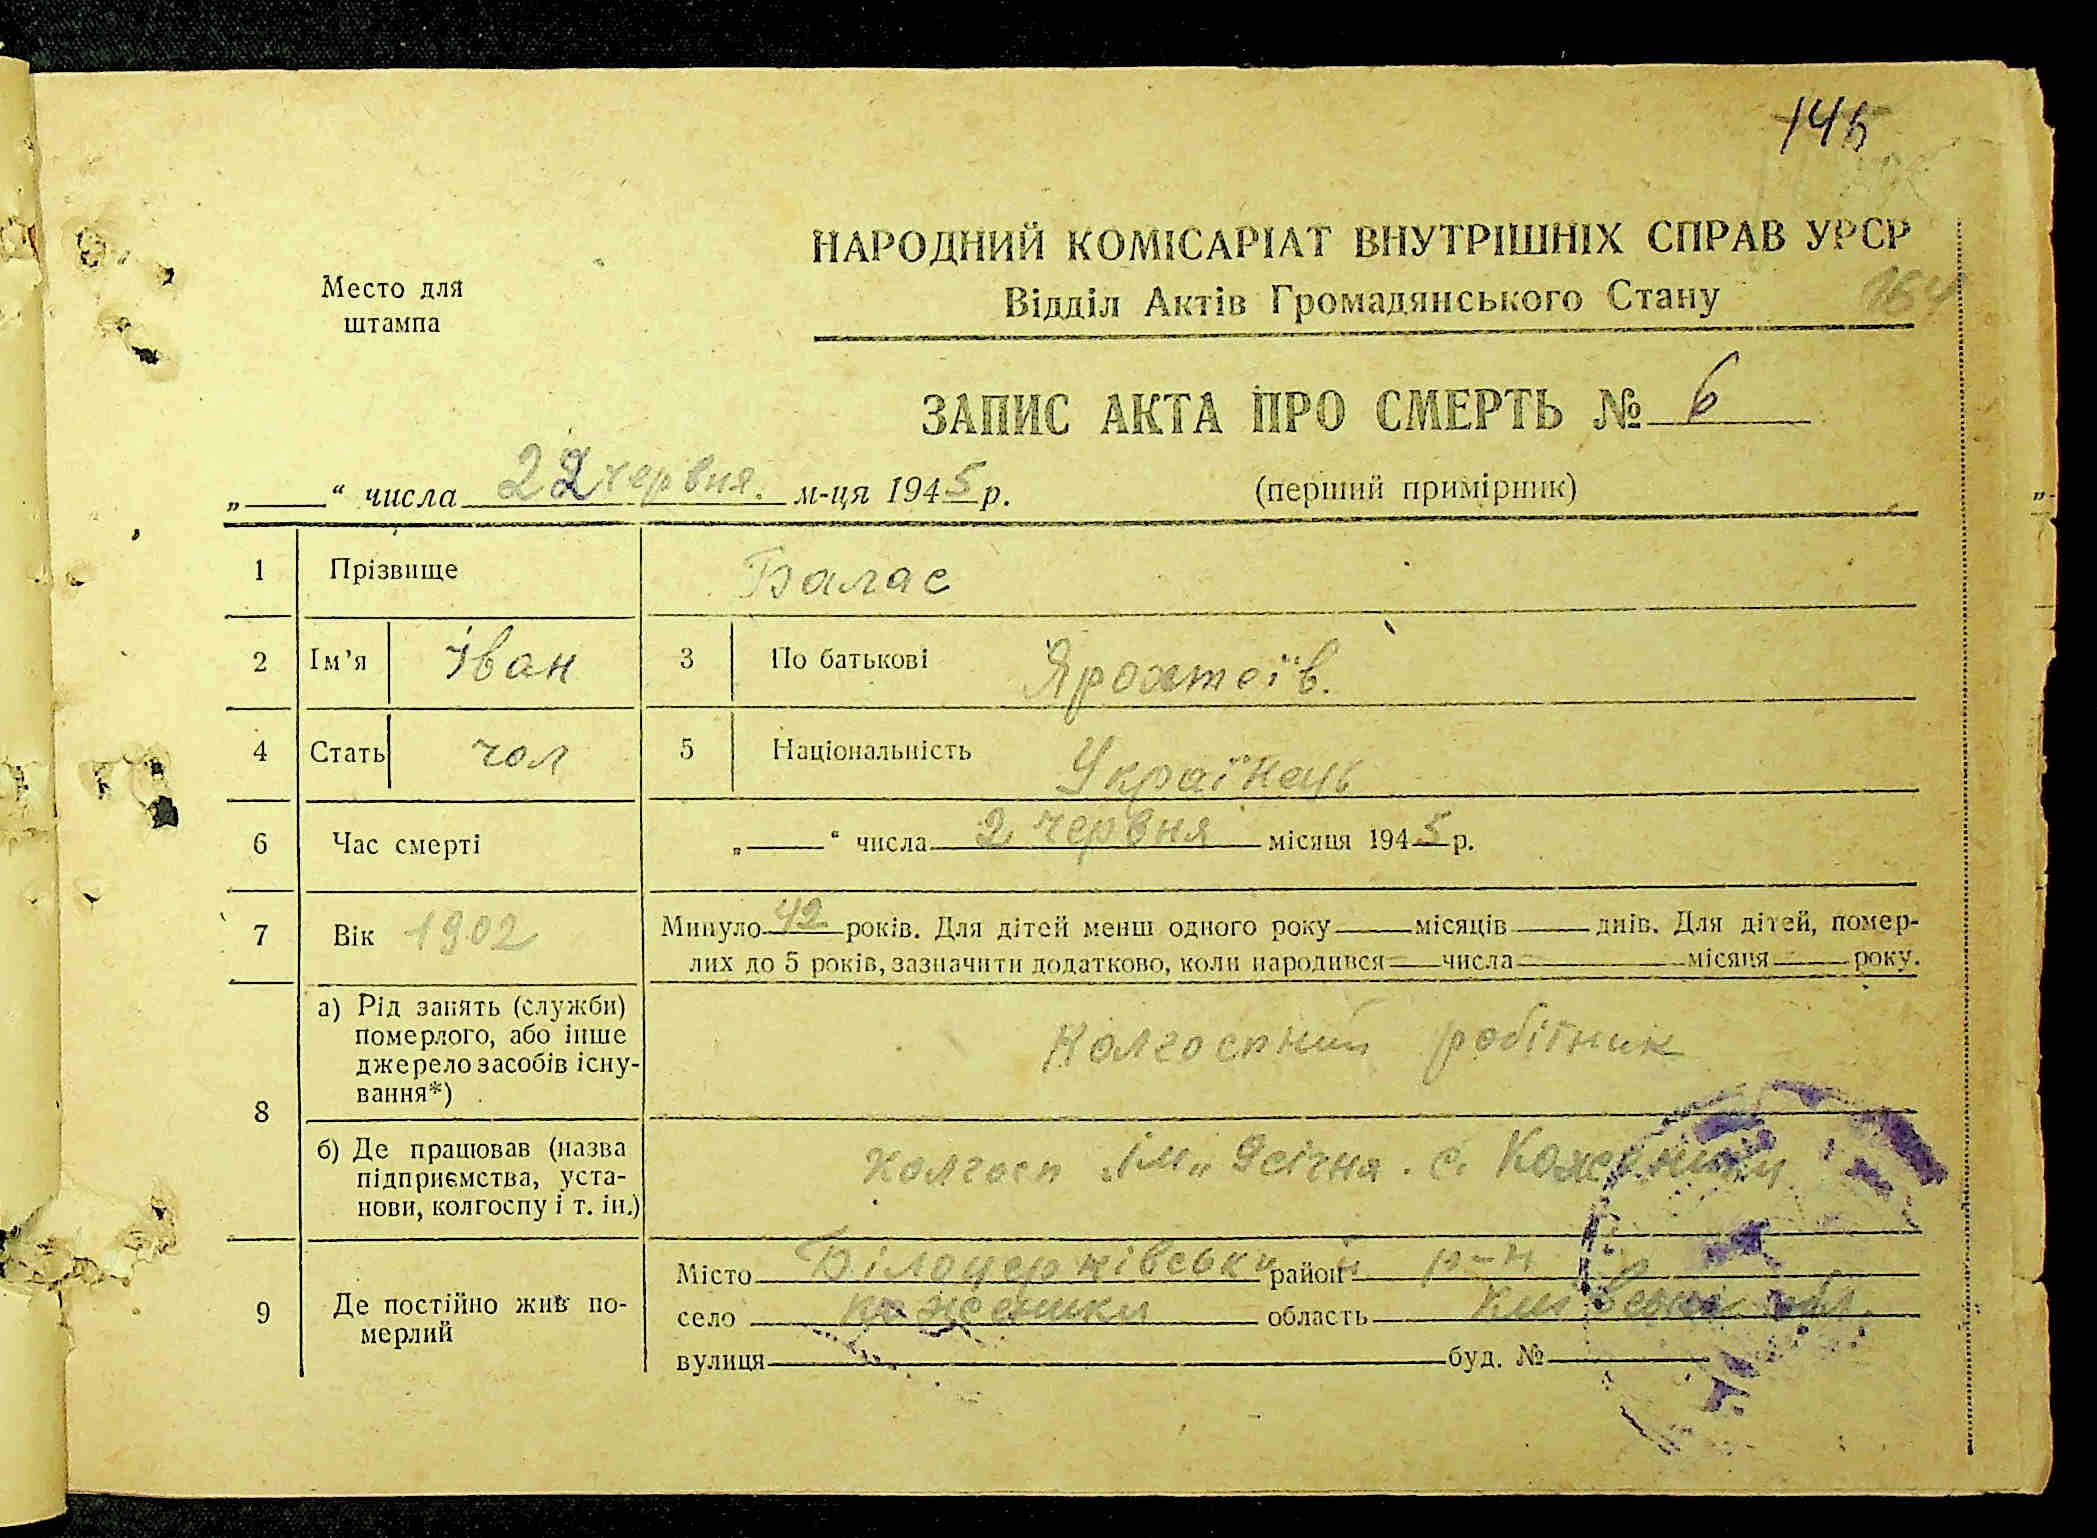 145
НАРОДНИЙ КОМІСАРІАТ ВНУТРІШНІХ СПРАВ УРСР
Место для штампа
Відділ Актів Громадянського Стану
ЗАПИС АКТА ПРО СМЕРТЬ № 6
„ “ числа 22 червня. м-ця 1945 р. (перший примірник)
1 Прізвище Балас
2 Ім’я Іван 3 По батькові
4 Стать чол 5 Національність Українець
6 Час смерті „ “ числа 2 червня місяця 1945 р.
7 Вік 1902 Минуло 42 років. Для дітей менш одного року місяців днів. Для дітей, помер-
лих до 5 років, зазначити додатково, коли народився числа місяця року.
8 а) Рід занять (служби)
померлого, або інше
джерело засобів існу-
вання*)
Колгоспний робітник
б) Де працював (назва
підприємства, уста-
нови, колгоспу і т. ін.)
колгосп ім„ 9 січня. с. Коженики
9 Де постійно жив по-
мерлий
Місто Білоцерківський район р-н
село коженики область Київська обл.
вулиця буд. №